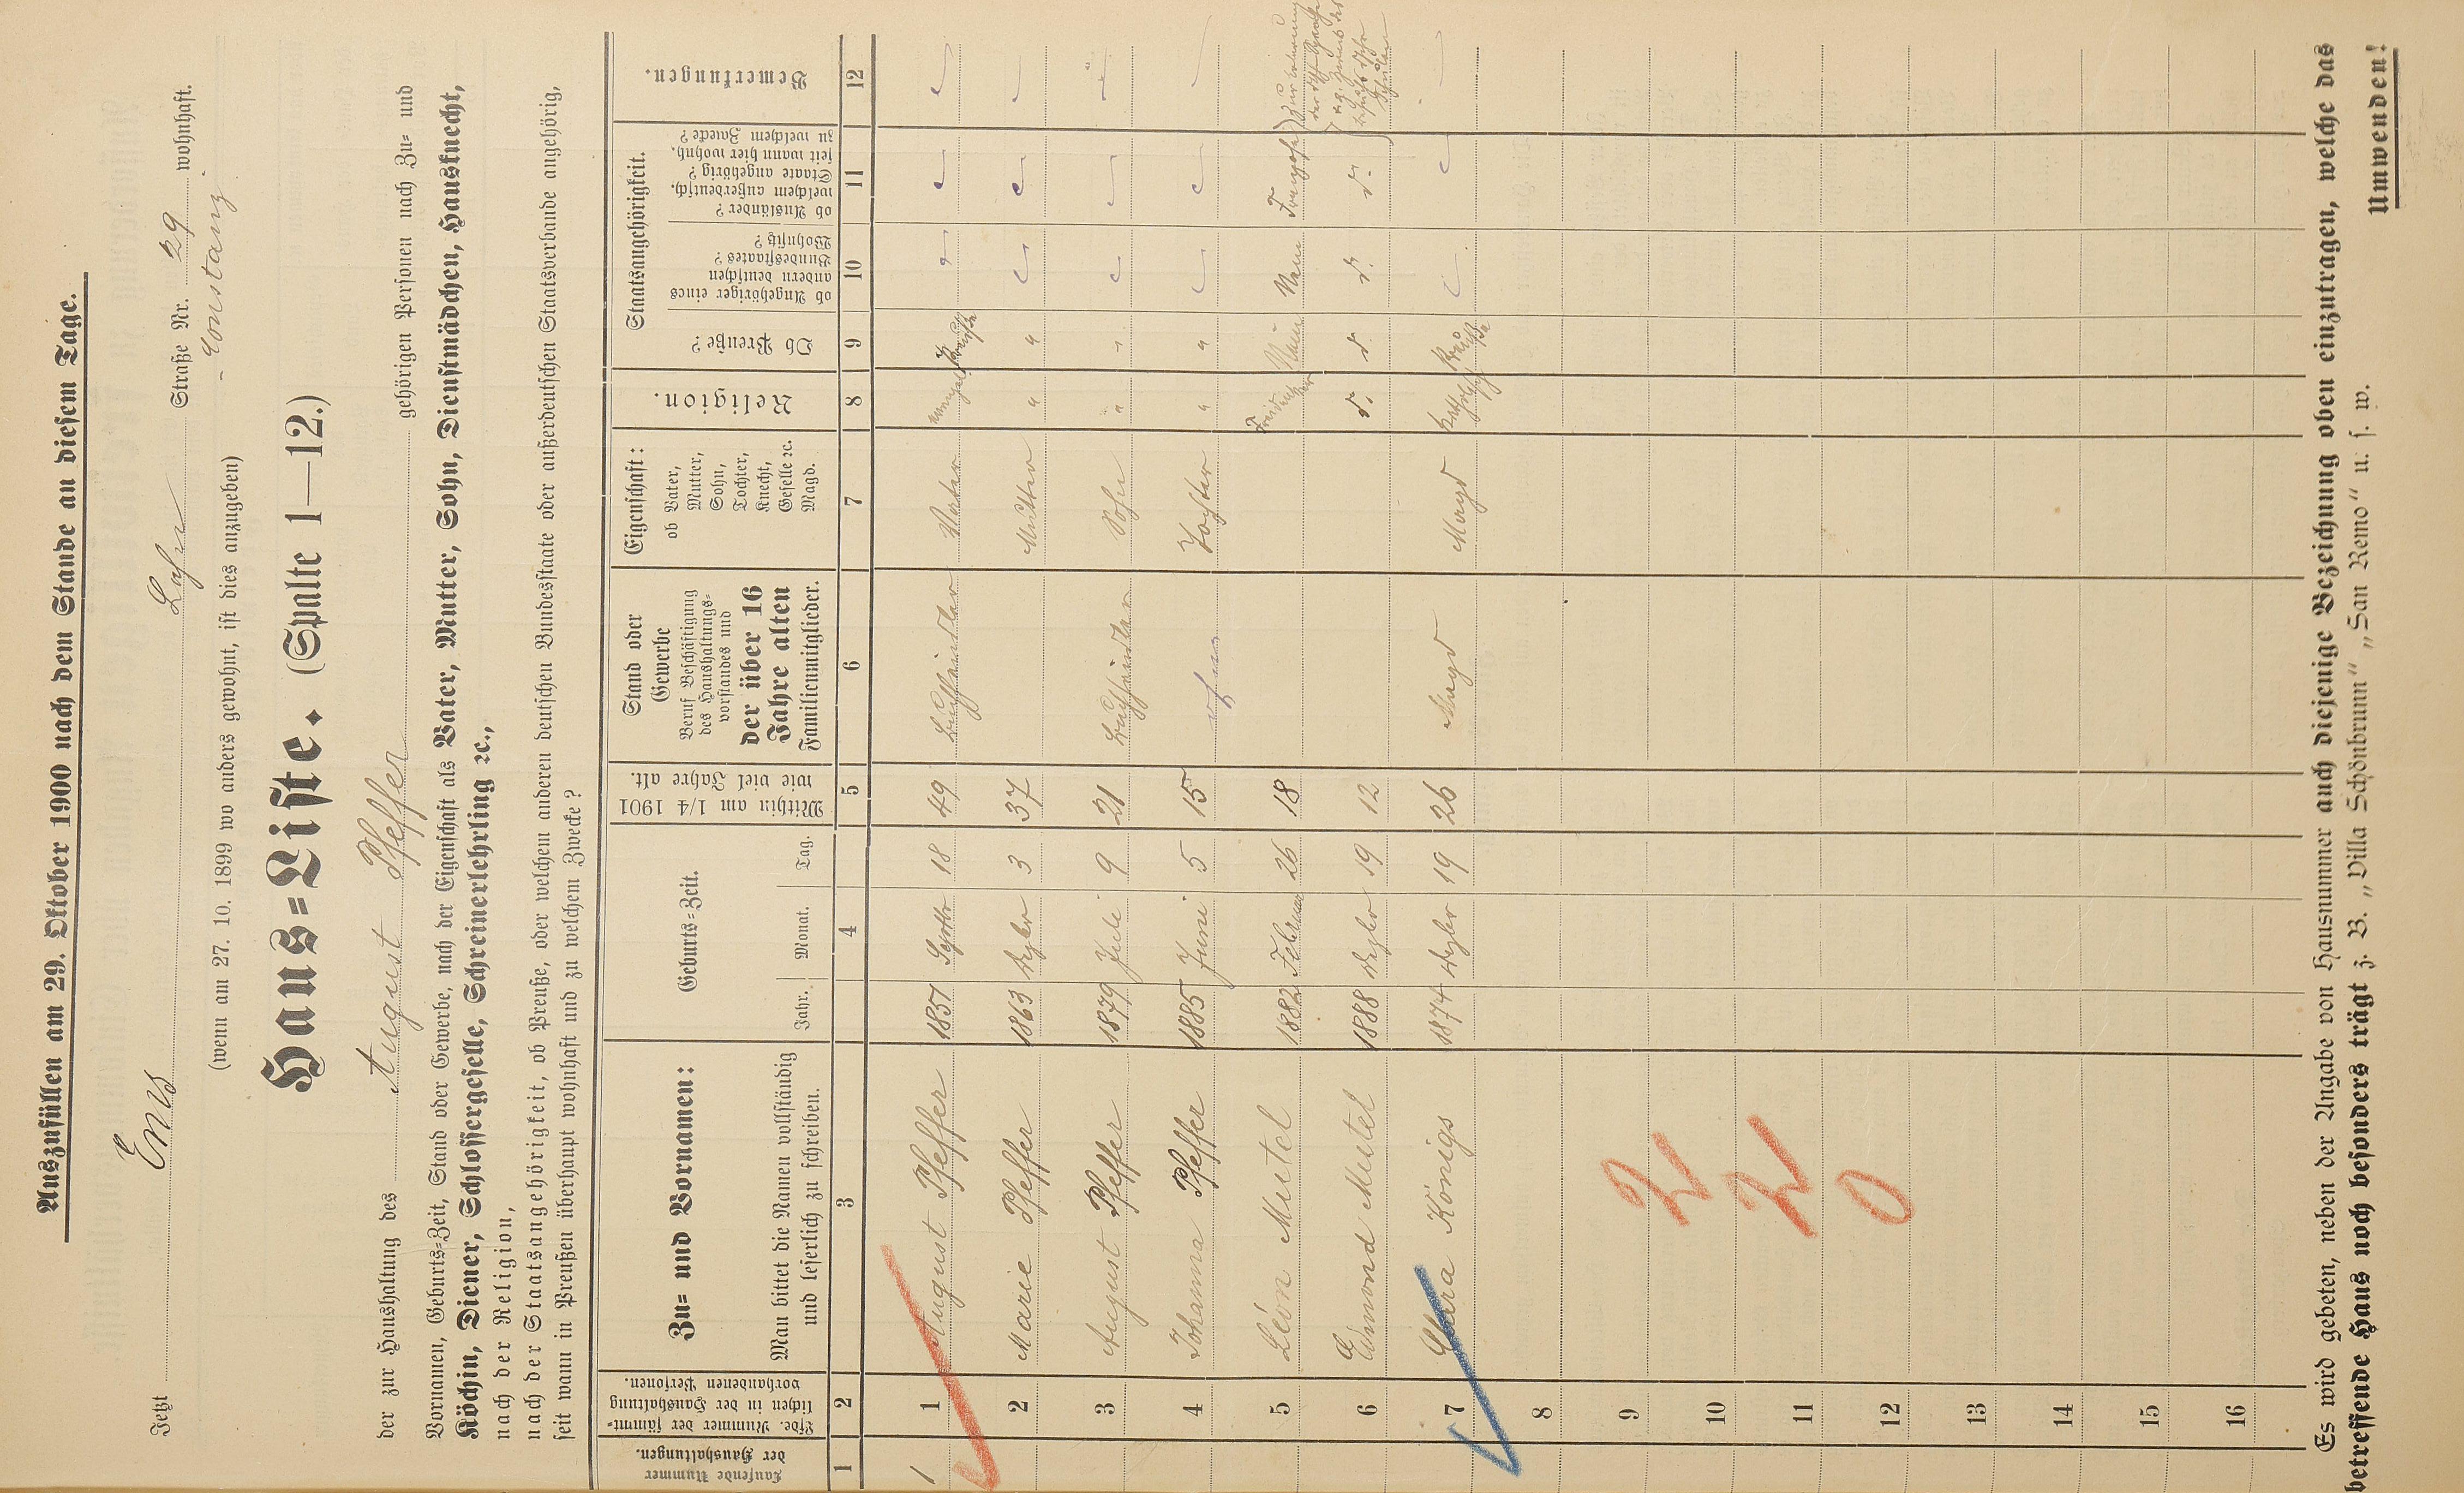 Auszufüllen am 29. Oktober 1900 nach dem Stande an diesem Tage.
Jetzt Ems Lahn Straße Nr. 29 wohnhaft.
(wenn am 27. 10. 1899 wo anders gewohnt, ist dies anzugeben) - Constanz
Haus=Liste. (Spalte 1—12.)
der zur Haushaltung des August Pfeffer gehörigen Personen nach Zu= und
Vornamen, Geburts=Zeit, Stand oder Gewerbe, nach der Eigenschaft als Vater, Mutter, Sohn, Dienstmädchen, Hausknecht,
Köchin, Diener, Schlossergeselle, Schreinerlehrling ꝛc.,
nach der Religion,
nach der Staatsangehörigkeit, ob Preuße, oder welchem anderen deutschen Bundesstaate oder außerdeutschen Staatsverbande angehörig,
seit wann in Preußen überhaupt wohnhaft und zu welchem Zwecke?
Laufende Nummer
der Haushaltungen.
1
Lfde. Nummer der sämmt=
lichen in der Haushaltung
vorhandenen Personen.
2
Zu= und Vornamen:
Man bittet die Namen vollständig
und leserlich zu schreiben.
3
Geburts=Zeit.
Jahr. Monat. Tag.
4
Mithin am 1/4 1901
wie viel Jahre alt.
5
Stand oder
Gewerbe
Beruf Beschäftigung
des Haushaltungs=
vorstandes und
der über 16
Jahre alten
Familienmitglieder.
6
Eigenschaft:
ob Vater,
Mutter,
Sohn,
Tochter,
Knecht,
Geselle ꝛc.
Magd.
7
Religion.
8
Staatsangehörigkeit.
Ob Preuße?
9
ob Angehöriger eines
andern deutschen
Bundesstaates?
Wohnsitz?
10
ob Ausländer?
welchem außerdeutsch.
Staate angehörig?
seit wann hier wohnh.
zu welchem Zwecke?
11
Bemerkungen.
12
1 1 August Pfeffer 1851 Septbr 18 49 Buchhändler Vater evangel. Preuße
2 Marie Pfeffer 1863 Dezbr 3 37 Mutter " "
3 August Pfeffer 1879 Juli 9 21 Buchhändler Sohn " "
4 Johanna Pfeffer 1885 Juni 5 15 ohne Tochter " "
5 Léon Mutel 1882 Februar 26 18 Nein Nein Franzose
6 Edmond Mutel 1888 Dezbr 19 12 d. d. d. d.
7 Clara Königs 1874 Dezbr 19 26 Magd Magd kathol. Preuße
8
9
10
11
12
13
14
15
16
2
2
0
Es wird gebeten, neben der Angabe von Hausnummer auch diejenige Bezeichnung oben einzutragen, welche das
betreffende Haus noch besonders trägt z. B. „Villa Schönbrunn" „San Remo" u. s. w.
Umwenden!